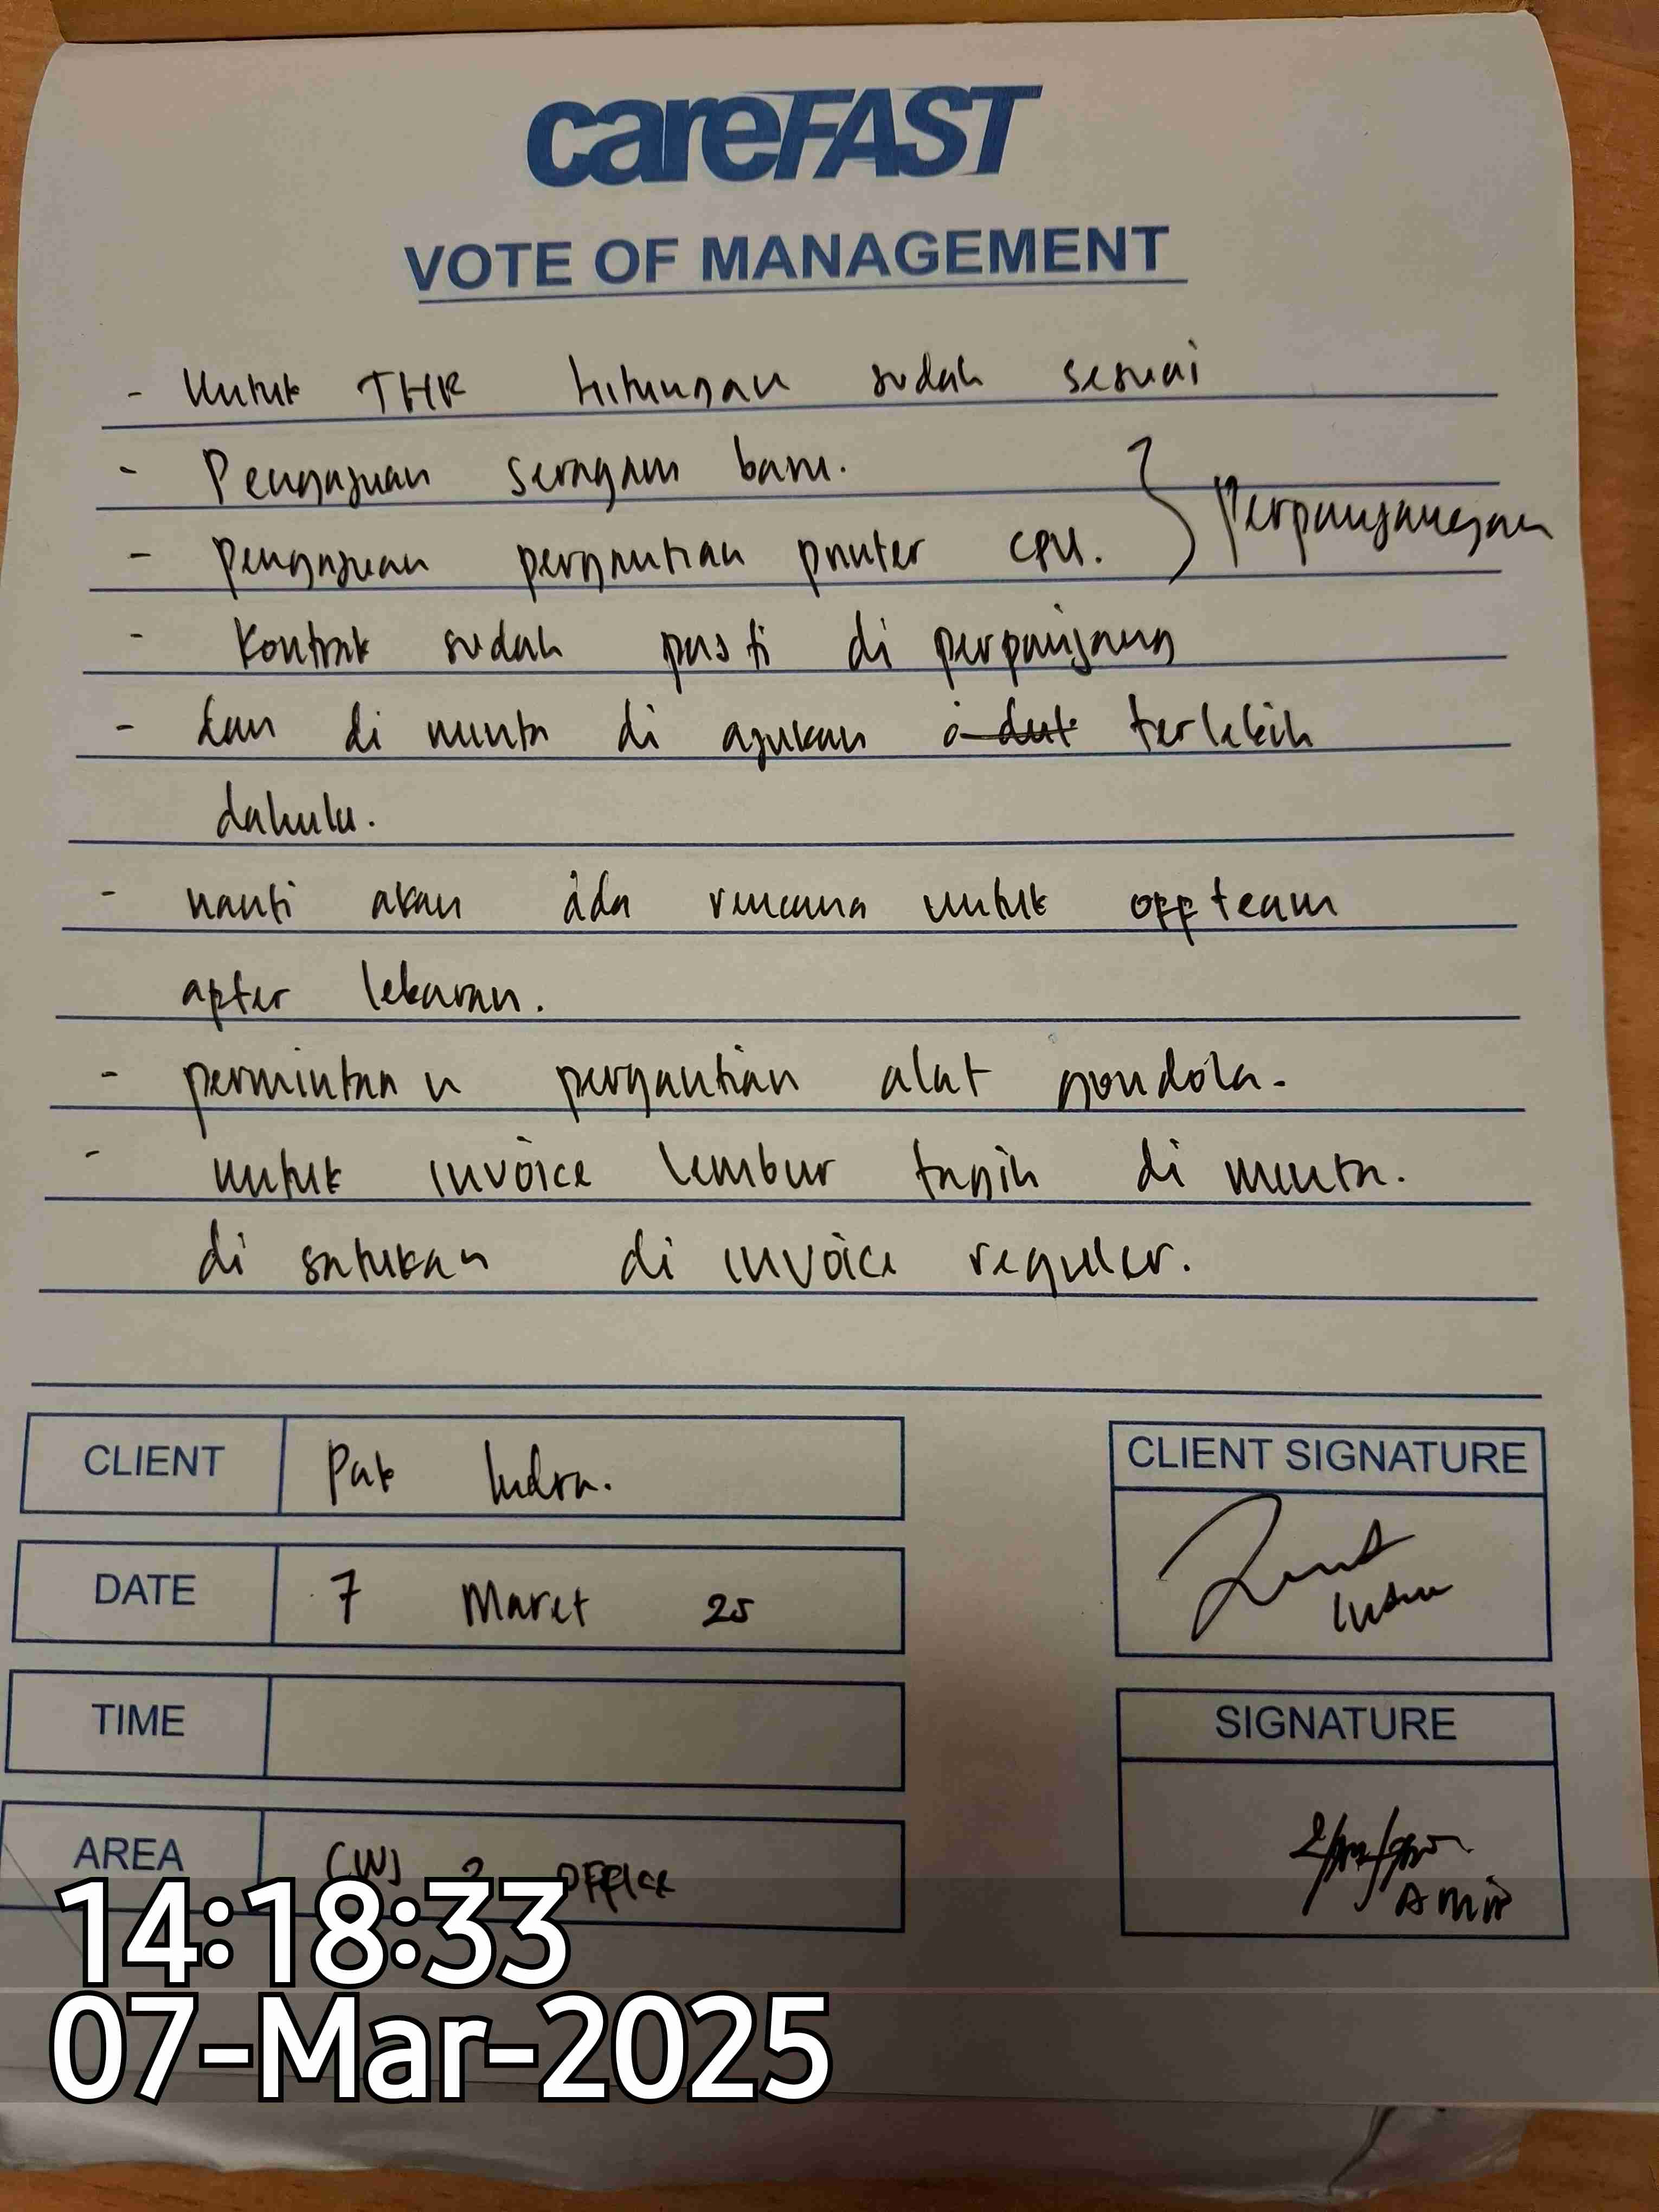 careFAST
VOTE OF MANAGEMENT
- Untuk THR hitungan sudah sesuai
- Pengajuan seragam baru.
- pengajuan pergantian printer CPU. } Perpanjangan
- Kontrak sudah pasti di perpanjang
- dan di minta di ajukan terlebih
dahulu.
- nanti akan ada rencana untuk off team
after lebaran.
- permintaan pergantian alat gondola.
- untuk invoice lembur tagih di minta.
di satukan di invoice reguler.
CLIENT Pak Indra.
DATE 7 Maret 25
TIME
AREA CWJ 2 OFFICE
CLIENT SIGNATURE
Indra
SIGNATURE
Amir
14:18:33
07-Mar-2025